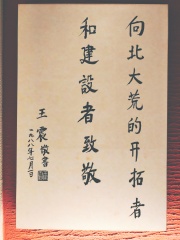 向北大荒的开拓者
和建設者致敬
王震敬書
一九八八年七月一日